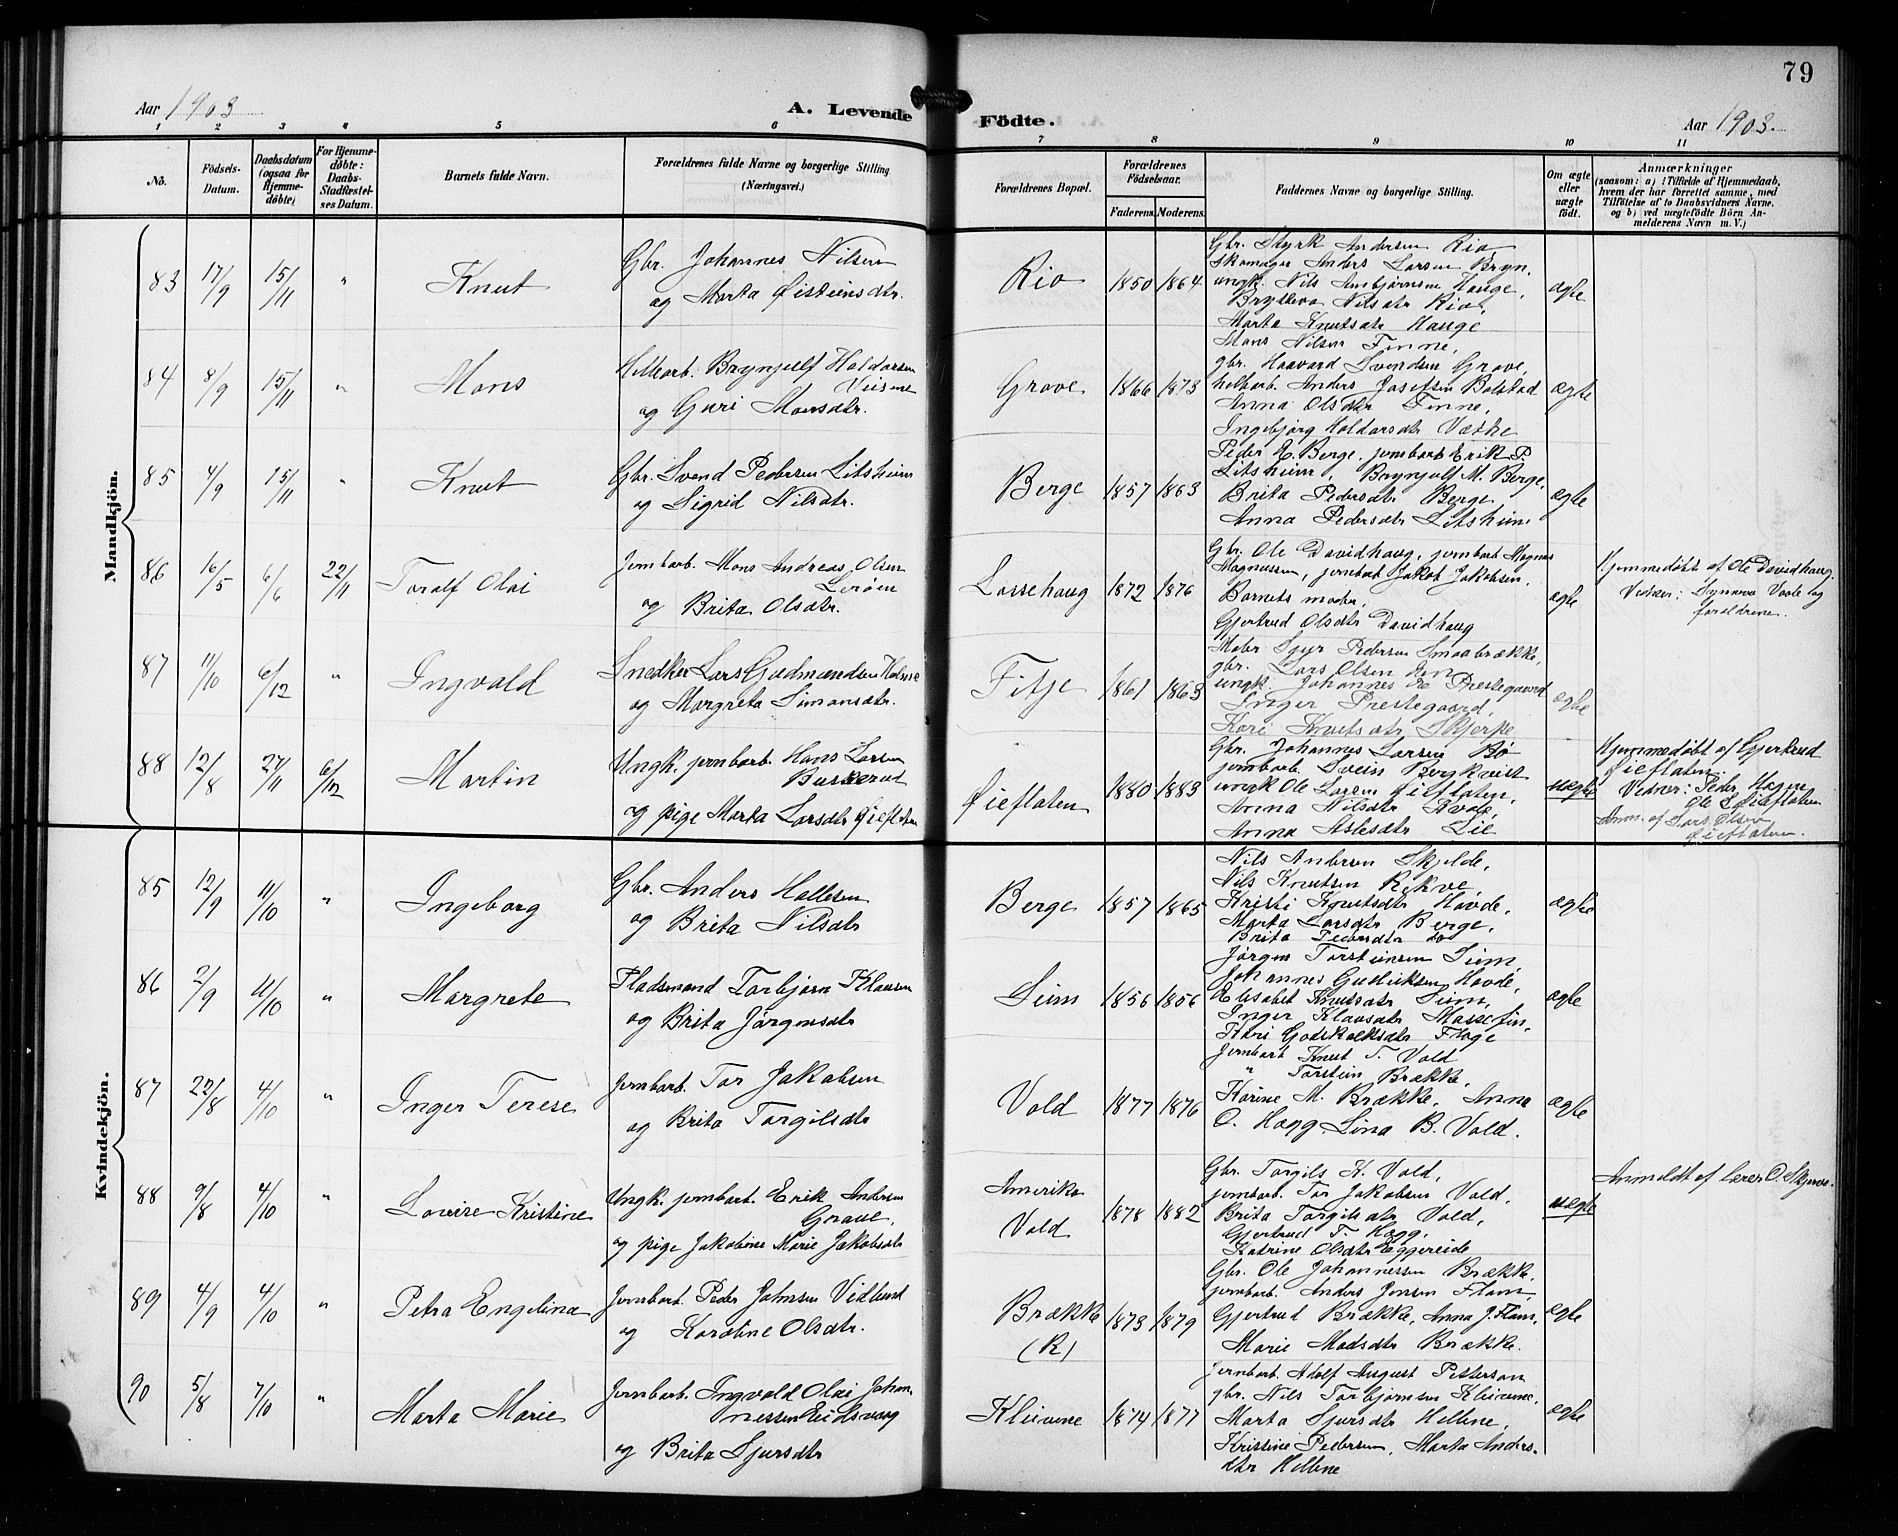 79
Aar 1903
A. Levende
Födte.
Aar 1903.
1 2 3 4 5 6 7 8 9 10 11
No.
Födsels-
Datum.
Daabsdatum
(ogsaa for
Hjemme-
döbte)
For Hjemme-
döbte:
Daabs-
Stadfæstel-
ses Datum.
Barnets fulde Navn.
Forældrenes fulde Navne og borgerlige Stilling
(Næringsvei.)
Forældrenes Bopæl.
Forældrenes
Födselsaar.
Faderens. Moderens.
Faddernes Navne og borgerlige Stilling.
Om ægte
eller
uægte
födt.
Anmærkninger
(saasom: a) i Tilfælde af Hjemmedaab,
hvem der har forrettet samme, med
Tilföielse af to Daabsvidners Navne.
og b) ved uægtefödte Börn An-
melderens Navn m. V.)
Mandkjön.
83 17/9 15/11 " Knut
Gbr. Johannes Nilsen
og Marta Øisteinsdtr.
Rio 1850 1864
Gbr. Styrk Andersen Rio
Skomager Anders Larsen Bryn,
ungk. Nils Ambjørnsen Hauge,
Brytteva Nilsdtr Rio,
Marta Knutsdtr Hauge
ægte
84 8/9 15/11 " Mons
Helkarb. Brynjulf Haldorsen
og Guri Monsdtr.
Grove 1866 1873
Mons Nilsen Finne,
gbr. Haavard Svendsen Grove,
helkarb. Anders Josefsen Bolstad
Anna Olsdtr Finne,
Ingebjørg Haldorsdtr
ægte
85 4/9 15/11 " Knut
Gbr. Svend Pedersen Litsheim
og Sigrid Nilsdtr.
Berge 1857 1863
Peder E. Berge, jernbarb Erik P.
Litsheim, Brynjulf M. Berge,
Brita Pedersdtr Berge
Anna Pedersdtr Litsheim
ægte
86 16/5 6/6 22/11 Toralf Olai
Jernbarb. Mons Andreas Olsen
Lerøen
og Brita Olsdtr.
Lassehaug 1872 1876
Gbr. Ole Davidhaug, jernbarb Magnus
Magnussen, jernbarb Jakob Jakobsen.
Barnets moder,
Gjertrud Olsdtr Davidhaug
ægte
Hjemmedøbt af Ole Davidhaug.
Vidner: Synneva og
forældrene.
87 11/10 6/12 " Ingvald
Snedker Lars Gudmundsen
og Margreta Simonsdtr.
Fitje 1861 1863
Sjur Pedersen Smaabrække,
gbr. Lars Olsen
ungk. Johannes Prestegaard
Inger Prestegaard,
Kari Knutsdtr Skjerpe
ægte
88 12/8 27/11 6/12 Martin
Ungk. jernbarb. Hans Larsen
og pige Marta Larsdtr Øieflaten
Øieflaten 1880 1883
Gbr. Johannes Larsen Bø
jernbarb. Svein Bergkvist
ungk Ole Larsen Øieflaten,
Anna Nilsdtr
Anna Aslesdtr Lie
uægte
Hjemmedøbt af Gjertrud
Øieflaten.
Vidner: Peder
Ole L Øieflaten
Anm. af Lars Olsen
Øieflaten.
Kvindekjön.
85 12/9 11/10 " Ingeborg
Gbr. Anders Hallesen
og Brita Nilsdtr
Berge 1857 1865
Nils Andersen Skjelde,
Nils Knutsen Rekve
Kristi Knutsdtr Hovde,
Marta Larsdtr Berge,
Brita Pedersdtr do
ægte
86 2/9 11/10 " Margrete
Pladsmand Torbjørn Klausen
og Brita Jørgensdtr
Seim 1856 1856
Jørgen Torsteinsen Seim,
Johannes Gudleiksen Hovde,
Elisabet Knutsdtr Seim,
Inger Klausdtr
Kari Godskalksdtr Flage
ægte
87 22/8 4/10 " Inger Terese
Jernbarb. Tor Jakobsen
og Brita Torgilsdtr
Vold 1877 1876
Jernbarb Knut T. Vold
" Torstein Brække,
Karine M. Brække, Anna
O. Hagg. Lina B. Vold.
ægte
88 9/8 4/10 " Lovise Kristine
Ungk. jernbarb. Erik Andersen
Graue,
og pige Jakobine Marie Jakobsdtr
Amerika
Vold 1878 1882
Gbr. Torgils K. Vold,
jernbarb. Tor Jakobsen Vold,
Brita Torgilsdtr Vold,
Gjertrud T. Hagg,
Katrine Olsdtr Eggereide
uægte
Anmeldt af Lærer O. Skjerve.
89 4/9 4/10 " Petra Engelina
Jernbarb. Peder Johnsen Vidlund
og Karoline Olsdtr.
Brække
(R) 1873 1879
Gbr. Ole Johannessen Brække,
Jernbarb. Anders Jensen Flam,
Gjertrud Brække, Anna J. Flam,
Marie Madsdtr Brække.
ægte
90 5/8 7/10 " Marta Marie
Jernbarb. Ingvald Olai Johan-
nessen Eidsvaag
og Brita Sjursdtr
Kleivene 1874 1877
Jernbarb. Adolf August Petterson
gbr. Nils Torbjørnsen Kleivene,
Marta Sjursdtr Hellene,
Kristine Pedersen, Marta Anders-
dtr Hellene
ægte